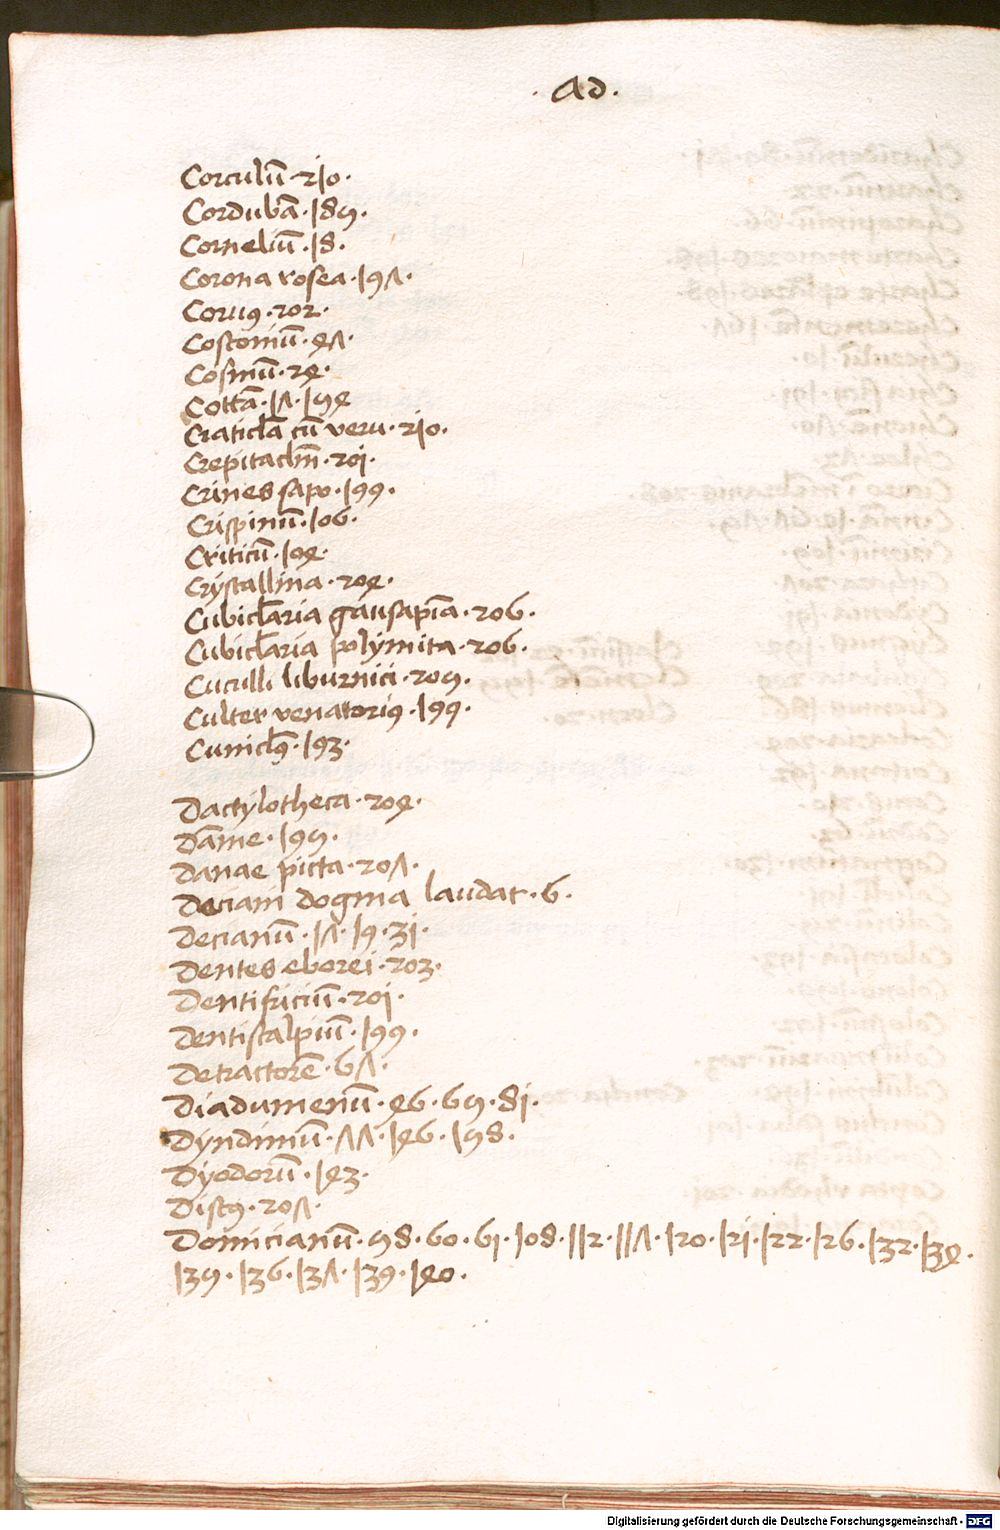 . Ad .
Corculū · 210 ·
Cordubā · 185 ·
Corneliū · 18 ·
Corona rosea · 197 ·
Coruꝰ · 202 ·
Cosconiū · 47 ·
Cosmū · 24 ·
Cottā · 17 · 154
Craticl̄a cū veru · 210 ·
Crepitaclm̄ · 201 ·
Crines sapo · 199 ·
Crispinū · 106 ·
Criticū · 104 ·
Crystallina · 204 ·
Cubicl̄aria gausapīa · 206 ·
Cubicl̄aria polymita · 206 ·
Cuculli liburnici · 205 ·
Culter venatoriꝰ · 199 ·
Cunicl̄ꝰ · 193 ·
Dactylotheca · 204 ·
Dāme · 195 ·
Danae picta · 207 ·
Deciani dogma laudat · 6 ·
Decianū · 17 · 19 · 31 ·
Dentes eborei · 203 ·
Dentifriciū · 201 ·
Dentiscalpiū · 199 ·
Detractorē · 67 ·
Diadumenū · 46 · 65 · 81 ·
Dyndimū · 77 · 146 · 158 ·
Dyodorū · 143 ·
Discꝰ · 207 ·
Domicianū · 58 · 60 · 61 · 108 · 112 · 117 · 120 · 121 · 122 · 126 · 132 · 134 ·
135 · 136 · 137 · 139 · 140 ·
Digitalisierung gefördert durch die Deutsche Forschungsgemeinschaft - DFG